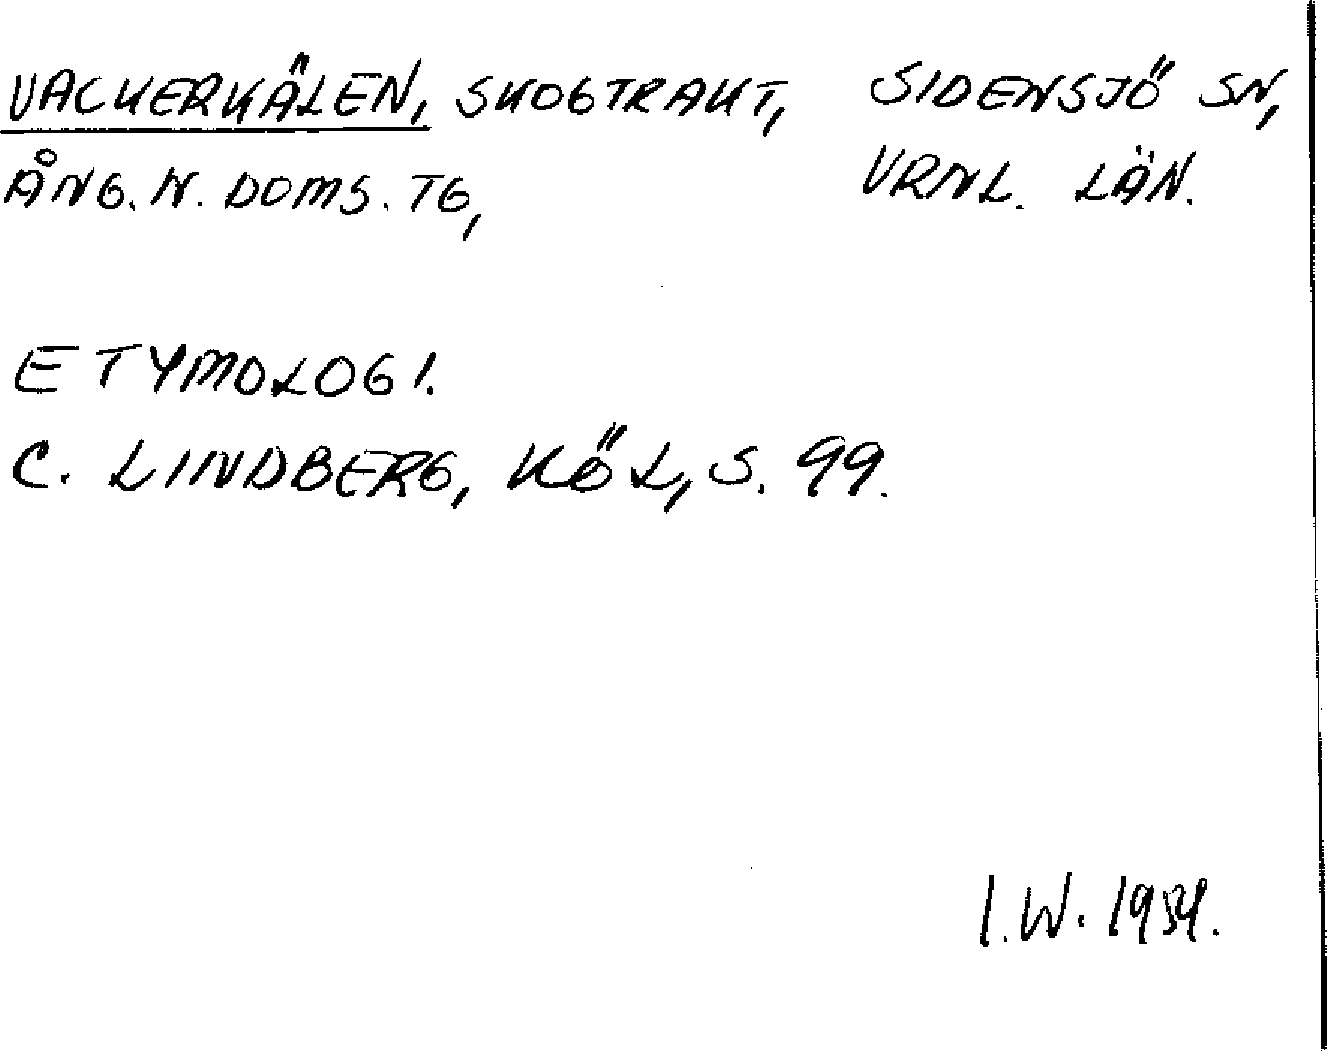 VACKERKÄLEN, SKOGTRAKT, SIDENSJÖ SN,
ÅNG. N. DOMS. TG, VRNL. LÄN.
ETYMOLOGI.
C. LINDBERG, KÖL, S. 99.
I.W.